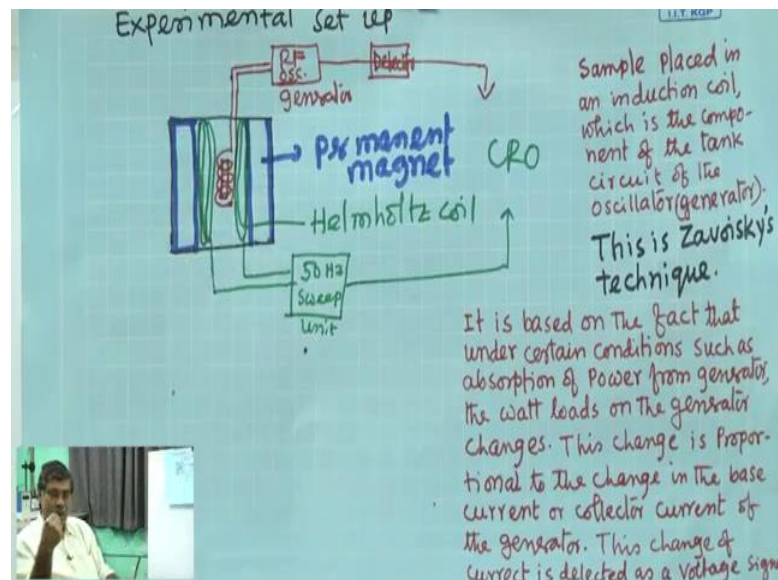 Experimental set up
I.I.T. KGP
RF
osc.
genrator
Detector
permanent
magnet
CRO
Helmholtz coil
50 Hz
Sweep
Unit
Sample placed in
an induction coil,
which is the compo-
nent of the tank
circuit of the
oscillator(generator).
This is Zavoisky's
technique.
It is based on the fact that
under certain conditions such as
absorption of Power from generator,
the watt loads on the generator
changes. This change is Propor-
tional to the change in the base
current or collector current of
the generator. This change of
current is detected as a voltage sign